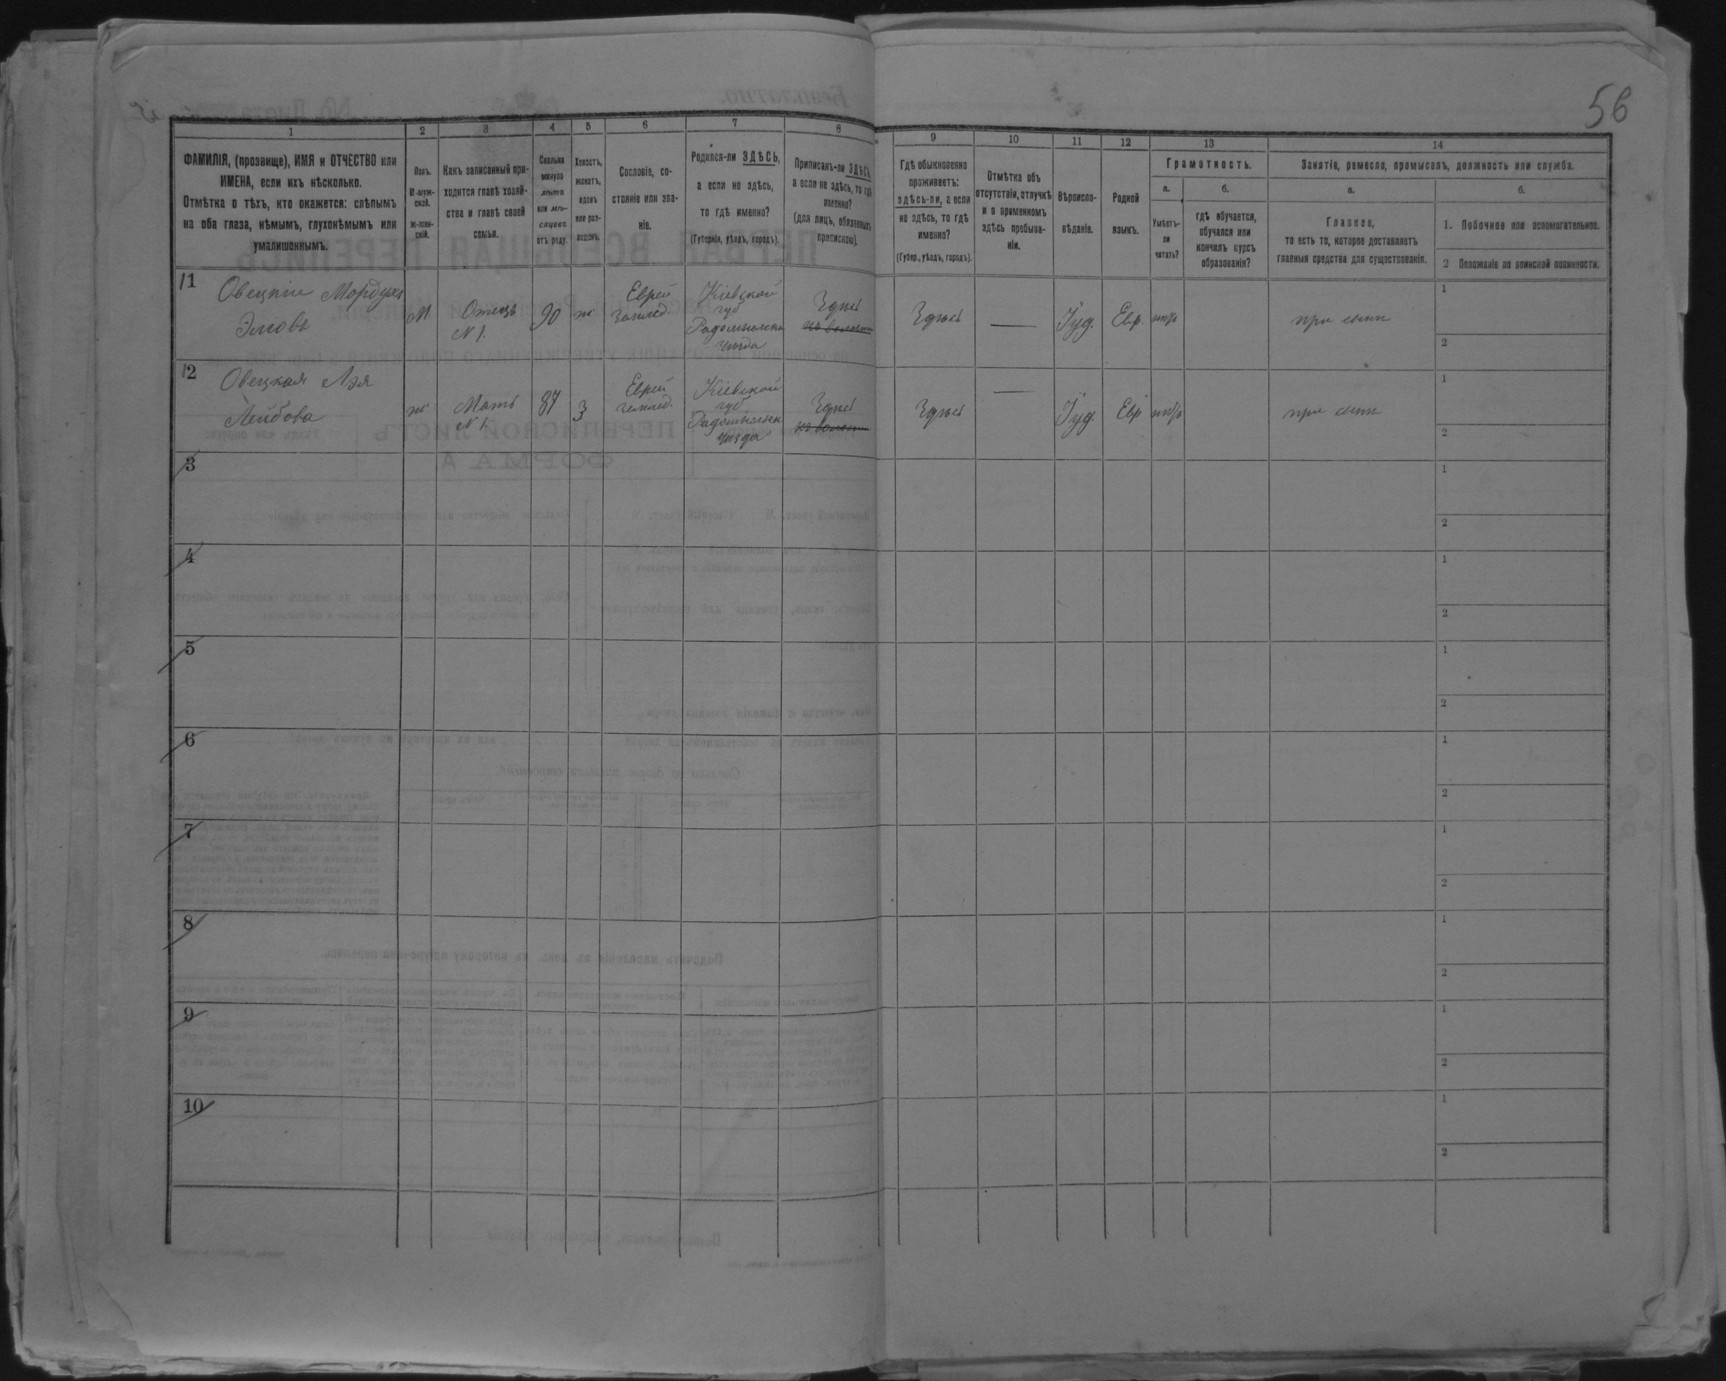 56
1
ФАМИЛІЯ, (прозвище), ИМЯ и ОТЧЕСТВО или
ИМЕНА, если ихъ нѣсколько.
Отмѣтка о тѣхъ, кто окажется: слѣпымъ
на оба глаза, нѣмымъ, глухонѣмымъ или
умалишеннымъ.
2
Полъ.
М-муж-
ской.
ж-жен-
скій.
3
Какъ записанный при-
ходится главѣ хозяй-
ства и главѣ своей
семьи.
4
Сколько
минуло
лѣтъ
или мѣ-
сяцевъ
отъ роду.
5
Холостъ,
женатъ,
вдовъ
или раз-
веденъ.
6
Сословіе, со-
стояніе или зва-
ніе.
7
Родился-ли ЗДѢСЬ,
а если не здѣсь,
то гдѣ именно?
(Губернія, уѣздъ, городъ).
8
Приписанъ-ли ЗДѢСЬ,
а если не здѣсь, то гдѣ
именно?
(для лицъ, обязанныхъ
припиской).
9
Гдѣ обыкновенно
проживаетъ:
здѣсь-ли, а если
не здѣсь, то гдѣ
именно?
(Губер., уѣздъ, городъ).
10
Отмѣтка объ
отсутствіи, отлучкѣ
и о временномъ
здѣсь пребыва-
ніи.
11
Вѣроиспо-
вѣданіе.
12
Родной
языкъ.
13
Грамотность.
а.
Умѣетъ-
ли
читать?
б.
гдѣ обучается,
обучался или
кончилъ курсъ
образованія?
14
Занятіе, ремесло, промыселъ, должность или служба.
а.
Главное,
то есть то, которое доставляетъ
главныя средства для существованія.
б.
1. Побочное или вспомогательное.
2 Положеніе по воинской повинности.
1
Овецкій Мордухъ
М
Отецъ
N 1.
90
Еврей
Кіевской
губ
Радомысльск
уѣзда
Здѣсь
Здѣсь
Іуд.
Евр.
при сынѣ
1
2
2
Овецкая
Лейбова
Мать
N 1.
87
З
Еврей
Кіевской
губ
Радомысльск
уѣзда
Здѣсь
Здѣсь
Іуд.
Евр
при сынѣ
1
2
3
1
2
4
1
2
5
1
2
6
1
2
7
1
2
8
1
2
9
1
2
10
1
2